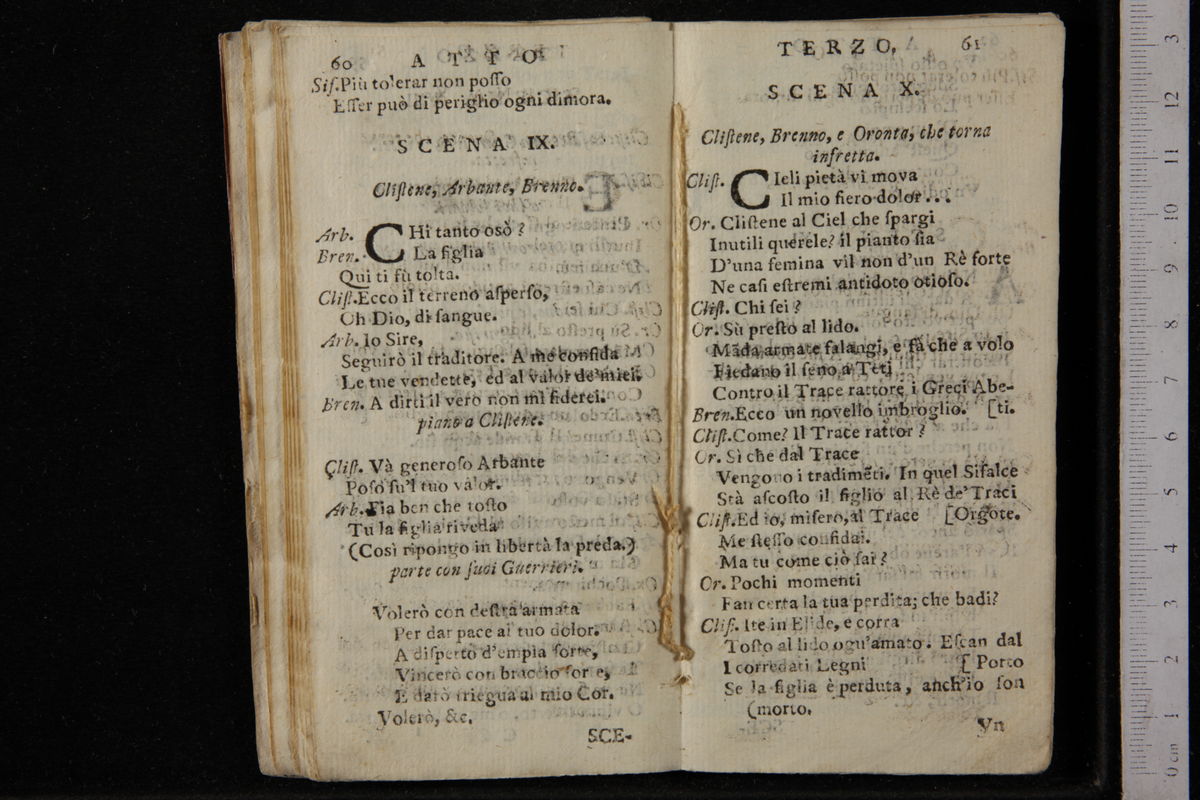 60 ATTO
Siſ. Più tolerar non poſſo
Eſſer può di periglio ogni dimora.
SCENA IX.
Cliſtene, Arbante, Brenno.
Arb. CHi tanto osò?
Bren. La figlia
Qui ti fù tolta.
Cliſt. Ecco il terreno aſperſo,
Oh Dio, di ſangue.
Arb. Io Sire,
Seguirò il traditore. A me confida
Le tue vendette, ed al valor de'miei.
Bren. A dirti il vero non mi fiderei.
piano a Cliſtene.
Cliſt. Và generoſo Arbante
Poſo ſu'l tuo valor.
Arb. Fia ben che toſto
Tu la figlia riveda
(Così ripongo in libertà la preda.)
parte con ſuoi Guerrieri.
Volerò con deſtra armata
Per dar pace al tuo dolor.
A diſpetto d'empia ſorte,
Vincerò con braccio forte,
E darò triegua al mio Cor.
Volerò, &c.
SCE-
TERZO. 61
SCENA X.
Cliſtene, Brenno, e Oronta, che torna
infretta.
Cliſt. CIeli pietà vi mova
Il mio fiero dolor...
Or. Cliſtene al Ciel che ſpargi
Inutili querele? il pianto ſia
D'una femina vil non d'un Rè forte
Ne caſi eſtremi antidoto otioſo.
Cliſt. Chi ſei?
Or. Sù preſto al lido.
Mãda armate falangi, e fà che a volo
Fiedano il ſeno a Teti
Contro il Trace rattore i Greci Abe-
Bren. Ecco un novello imbroglio. [ti.
Cliſt. Come? Il Trace rattor?
Or. Sì che dal Trace
Vengono i tradimẽti. In quel Sifalce
Stà aſcoſto il figlio al Rè de'Traci
Cliſt. Ed io, miſero, al Trace [Orgote.
Me ſteſſo confidai.
Ma tu come ciò ſai?
Or. Pochi momenti
Fan certa la tua perdita; che badi?
Cliſt. Ite in Elide, e corra
Toſto al lido ogu'amato. Eſcan dal
I corredati Legni [Porto
Se la figlia è perduta, anch'io ſon
(morto.
Vn